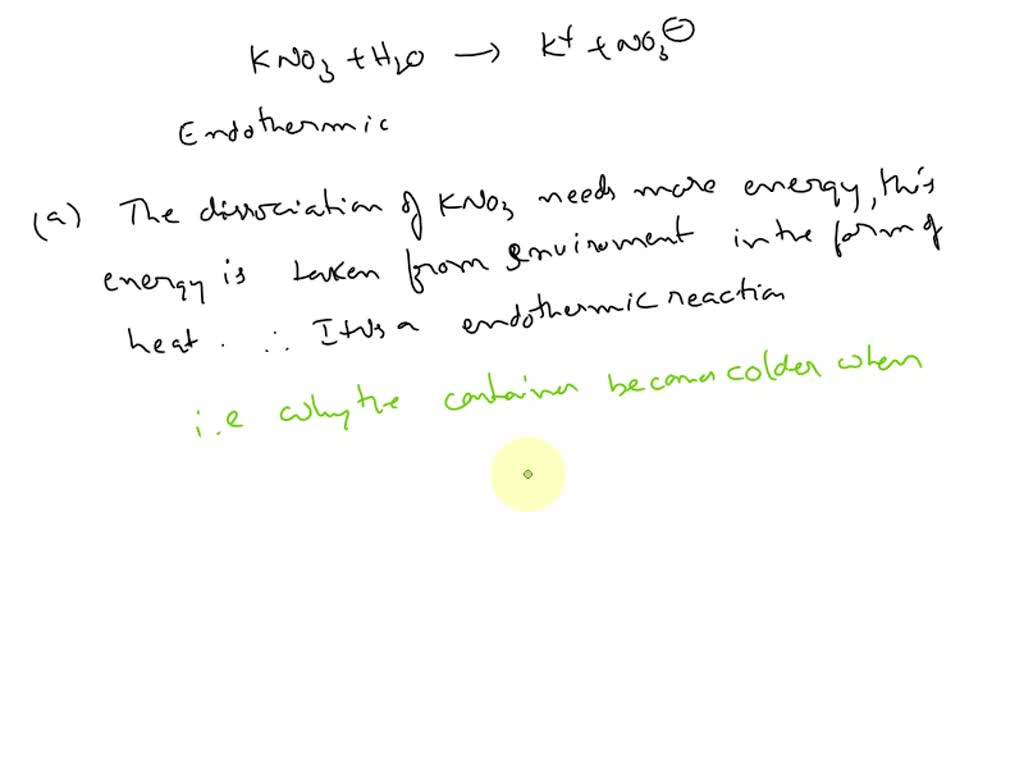 KNO₃ + H₂O → K⁺ + NO₃⊖
Endothermic
(a) The dissociation of KNO₃ needs more energy, this
energy is taken from environment in the form of
heat. ∴ It is a endothermic reaction
i.e why the container becomes colder when